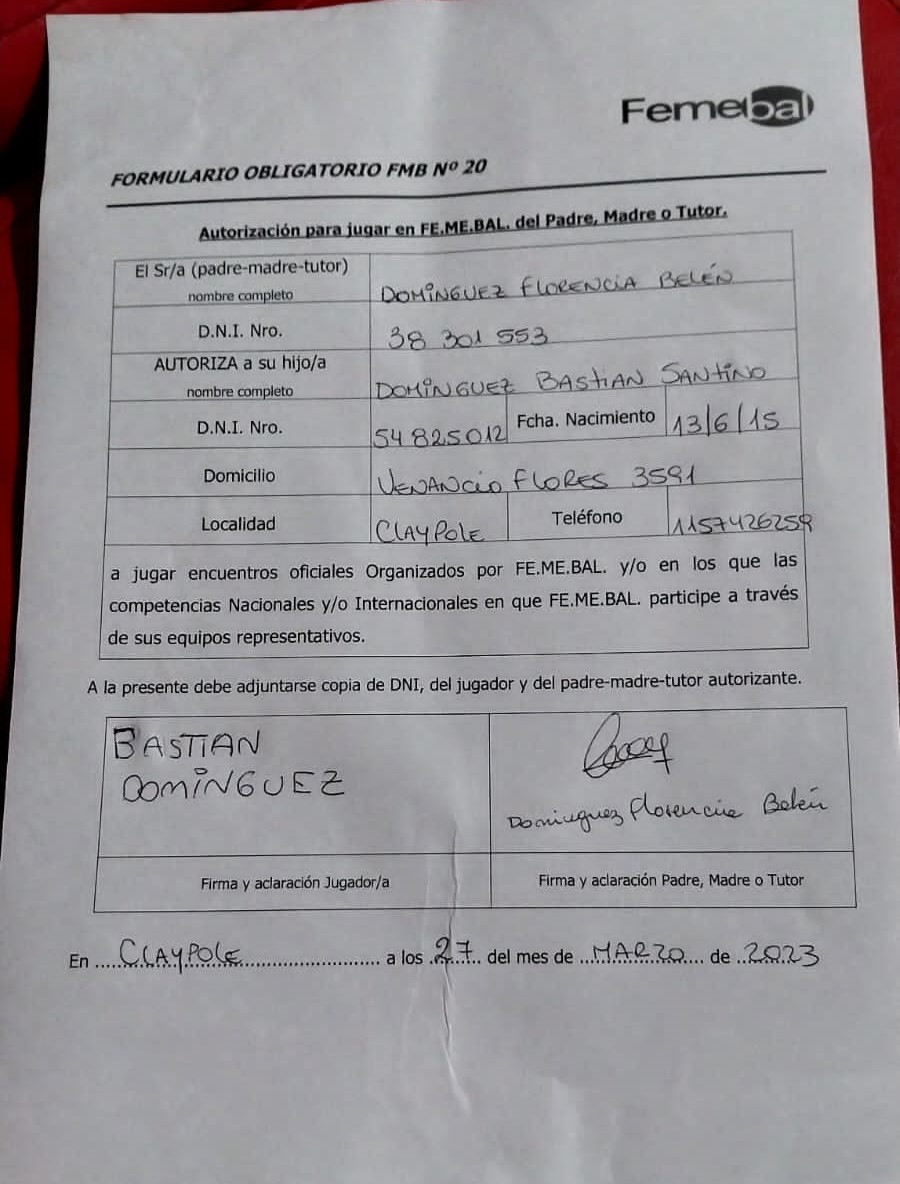 Femebal
FORMULARIO OBLIGATORIO FMB Nº 20
Autorización para jugar en FE.ME.BAL. del Padre, Madre o Tutor.
El Sr/a (padre-madre-tutor)
nombre completo
DOMÍNGUEZ FLORENCIA BELÉN
D.N.I. Nro.
38 301 553
AUTORIZA a su hijo/a
nombre completo
DOMÍNGUEZ BASTIAN SANTINO
D.N.I. Nro.
54 825 012
Fcha. Nacimiento
13/6/15
Domicilio
VENANCIO FLORES 3591
Localidad
CLAYPOLE
Teléfono
1157426259
a jugar encuentros oficiales Organizados por FE.ME.BAL. y/o en los que las
competencias Nacionales y/o Internacionales en que FE.ME.BAL. participe a través
de sus equipos representativos.
A la presente debe adjuntarse copia de DNI, del jugador y del padre-madre-tutor autorizante.
BASTIAN
DOMÍNGUEZ
Dominguez Florencia Belén
Firma y aclaración Jugador/a
Firma y aclaración Padre, Madre o Tutor
En ....CLAYPOLE........................... a los .27.. del mes de ..MARZO.... de ..2023